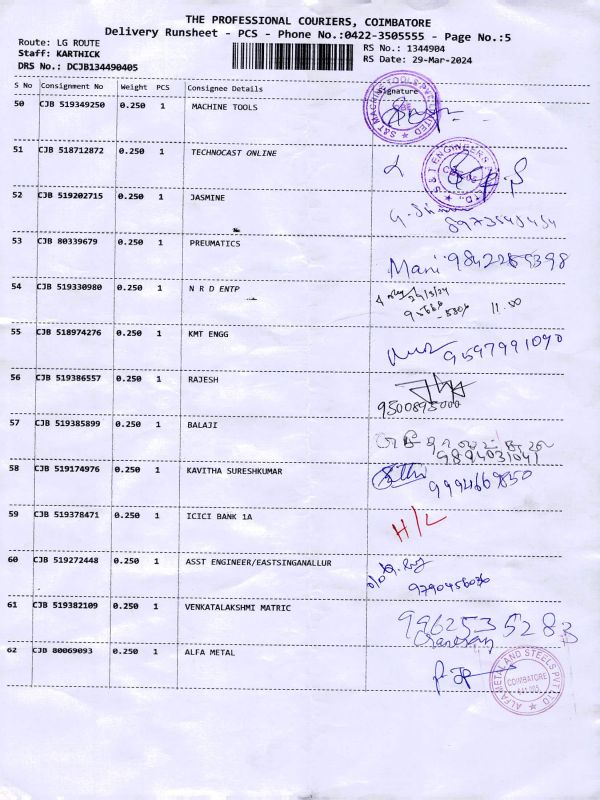 THE PROFESSIONAL COURIERS, COIMBATORE
Delivery Runsheet - PCS - Phone No.:0422-3505555 - Page No.:5
Route: LG ROUTE RS No.: 1344904
Staff: KARTHICK RS Date: 29-Mar-2024
DRS No.: DCJB134490405
S No Consignment No Weight PCS Consignee Details Signature
50 CJB 519349250 0.250 1 MACHINE TOOLS
51 CJB 518712872 0.250 1 TECHNOCAST ONLINE
52 CJB 519202715 0.250 1 JASMINE
53 CJB 80339679 0.250 1 PREUMATICS Mani
54 CJB 519330980 0.250 1 N R D ENTP 29/3/24
11.00
55 CJB 518974276 0.250 1 KMT ENGG 9597991090
56 CJB 519386557 0.250 1 RAJESH
9500895000
57 CJB 519385899 0.250 1 BALAJI
9894031041
58 CJB 519174976 0.250 1 KAVITHA SURESHKUMAR
59 CJB 519378471 0.250 1 ICICI BANK 1A H/L
60 CJB 519272448 0.250 1 ASST ENGINEER/EASTSINGANALLUR
9790456036
61 CJB 519382109 0.250 1 VENKATALAKSHMI MATRIC 9962535283
62 CJB 80069093 0.250 1 ALFA METAL
ALFA METAL AND STEELS PVT LTD
COIMBATORE